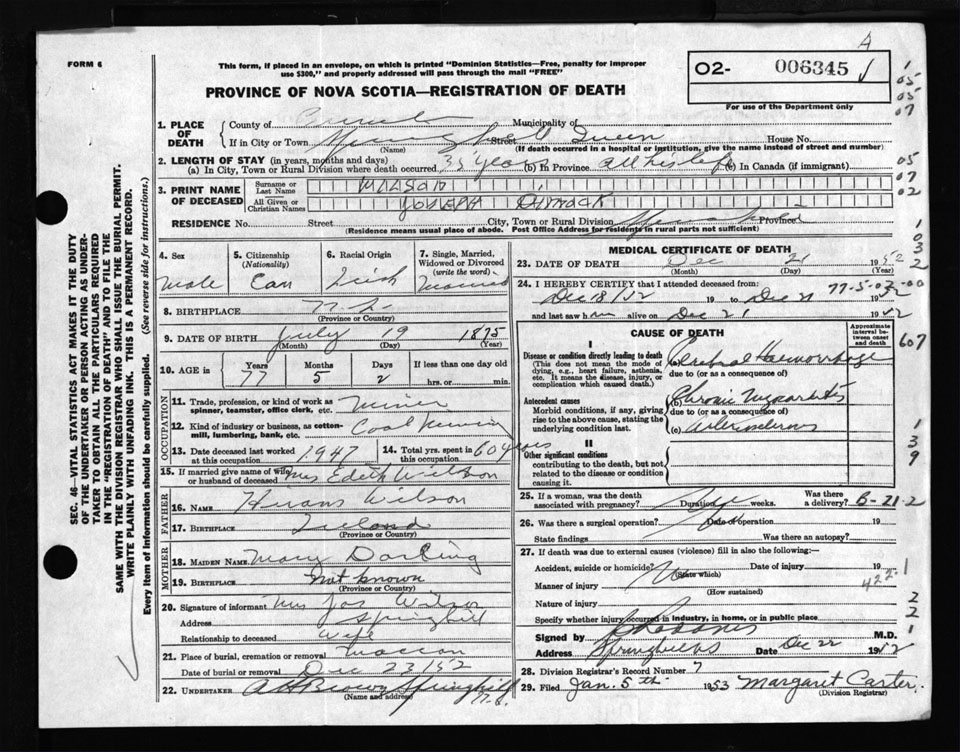 A
FORM 6
This form, if placed in an envelope, on which is printed "Dominion Statistics—Free, penalty for improper
use $300," and properly addressed will pass through the mail "FREE"
02- 006345
For use of the Department only
PROVINCE OF NOVA SCOTIA—REGISTRATION OF DEATH
1. PLACE OF DEATH
County of Municipality of
If in City or Town Street Queen House No.
(Name) (If death occurred in a hospital or institution, give the name instead of street and number)
2. LENGTH OF STAY (in years, months and days)
(a) In City, Town or Rural Division where death occurred 35 years (b) In Province all his life (c) In Canada (if immigrant)
3. PRINT NAME OF DECEASED
Surname or Last Name
All Given or Christian Names JOSEPH DIMOCK
RESIDENCE No. Street City, Town or Rural Division Province
(Residence means usual place of abode. Post Office Address for residents in rural parts not sufficient)
4. Sex Male
5. Citizenship (Nationality) Can
6. Racial Origin Irish
7. Single, Married, Widowed or Divorced (write the word) Married
8. BIRTHPLACE N.S.
(Province or Country)
9. DATE OF BIRTH July 19 1875
(Month) (Day) (Year)
10. AGE in Years 77 Months 5 Days 2 If less than one day
hrs. or min.
OCCUPATION
11. Trade, profession, or kind of work as spinner, teamster, office clerk, etc. Miner
12. Kind of industry or business, as cotton-mill, lumbering, bank, etc. Coal Mining
13. Date deceased last worked at this occupation 1947
14. Total yrs. spent in this occupation 60 years
15. If married give name of wife or husband of deceased Mrs Edith Wilson
FATHER
16. NAME Wilson
17. BIRTHPLACE Ireland
(Province or Country)
MOTHER
18. MAIDEN NAME Mary Darling
19. BIRTHPLACE Not known
(Province or Country)
20. Signature of informant Mrs Jos Wilson
Address Springhill
Relationship to deceased Wife
21. Place of burial, cremation or removal Maccan
Date of burial or removal Dec 23/52
22. UNDERTAKER Brown Springhill N.S.
(Name and address)
SEC. 46—VITAL STATISTICS ACT MAKES IT THE DUTY
OF THE UNDERTAKER OR PERSON ACTING AS UNDER-
TAKER TO OBTAIN ALL THE PARTICULARS REQUIRED
IN THE "REGISTRATION OF DEATH" AND TO FILE THE
SAME WITH THE DIVISION REGISTRAR WHO SHALL ISSUE THE BURIAL PERMIT.
WRITE PLAINLY WITH UNFADING INK. THIS IS A PERMANENT RECORD.
Every item of Information should be carefully supplied. (See reverse side for instructions.)
MEDICAL CERTIFICATE OF DEATH
23. DATE OF DEATH Dec 21 1952
(Month) (Day) (Year)
24. I HEREBY CERTIFY that I attended deceased from:
77-5-02-00
Dec 18/52 19 to Dec 21 1952
and last saw him alive on Dec 21 1952
CAUSE OF DEATH
Approximate interval between onset and death
607
I
Disease or condition directly leading to death
(This does not mean the mode of dying, e.g., heart failure, asthenia, etc. It means the disease, injury, or complication which caused death.)
(a) Cerebral Haemorrhage
due to (or as a consequence of)
Antecedent causes
Morbid conditions, if any, giving rise to the above cause, stating the underlying condition last.
(b) Chronic Myocarditis
due to (or as a consequence of)
(c) Arteriosclerosis
II
Other significant conditions
contributing to the death, but not related to the disease or condition causing it.
25. If a woman, was the death associated with pregnancy? Duration weeks. Was there a delivery?
B-21-2
26. Was there a surgical operation? Date of operation 19
State findings Was there an autopsy?
27. If death was due to external causes (violence) fill in also the following:—
Accident, suicide or homicide? Date of injury 19
(State which)
422-1
Manner of injury
(How sustained)
Nature of injury
Specify whether injury occurred in industry, in home, or in public place
Signed by M.D.
Address Date Dec 22 1952
28. Division Registrar's Record Number 7
29. Filed Jan. 5th 1953 Margaret Carter.
(Division Registrar)
1
05
05
07
05
07
02
1
0
3
2
1
3
9
2
2
1